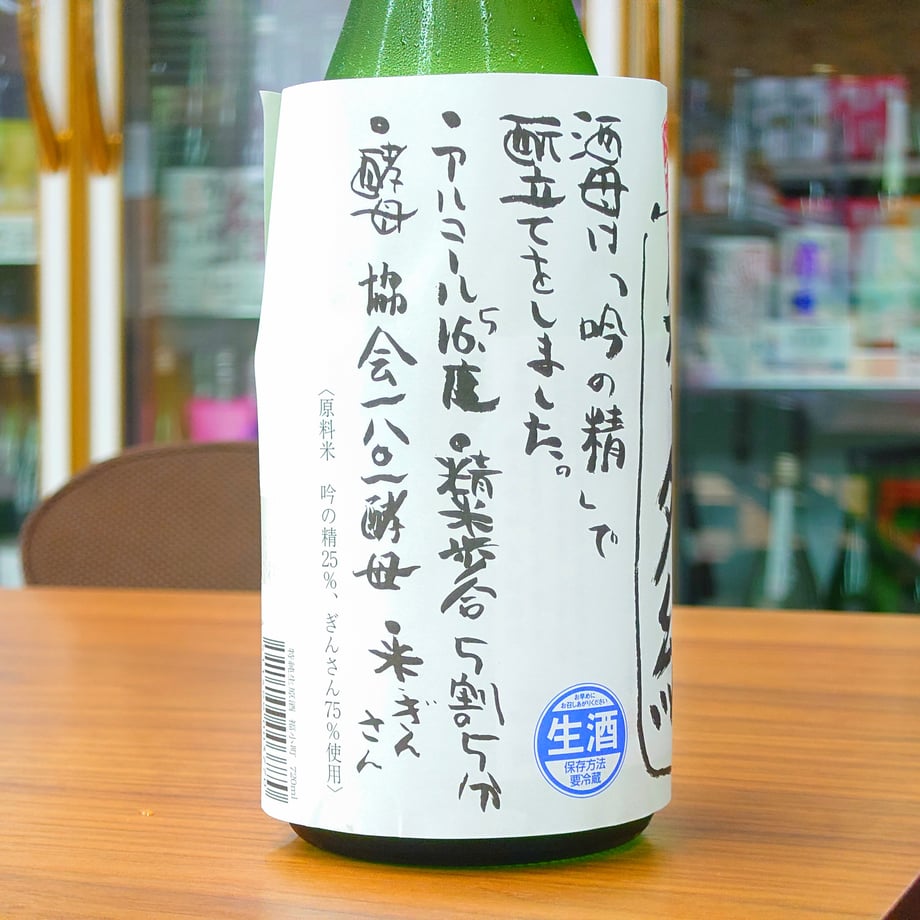 酒母は、「吟の精」で
酛立てをしました。
・アルコール16.5度 ・精米歩合 5割5分
・酵母 協会一八〇一酵母 ・米ぎんさん
〈原料米 吟の精25%、ぎんさん75%使用〉
お早めに
お召しあがりください
生酒
保存方法
要冷蔵
720ml